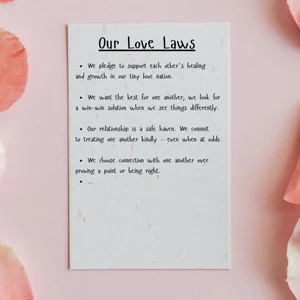 Our Love Laws
• We pledge to support each other's healing
and growth in our tiny love nation.
• We want the best for one another; we look for
a win-win solution when we see things differently.
• Our relationship is a safe haven. We commit
to treating one another kindly - even when at odds.
• We choose connection with one another over
proving a point or being right.
• ...